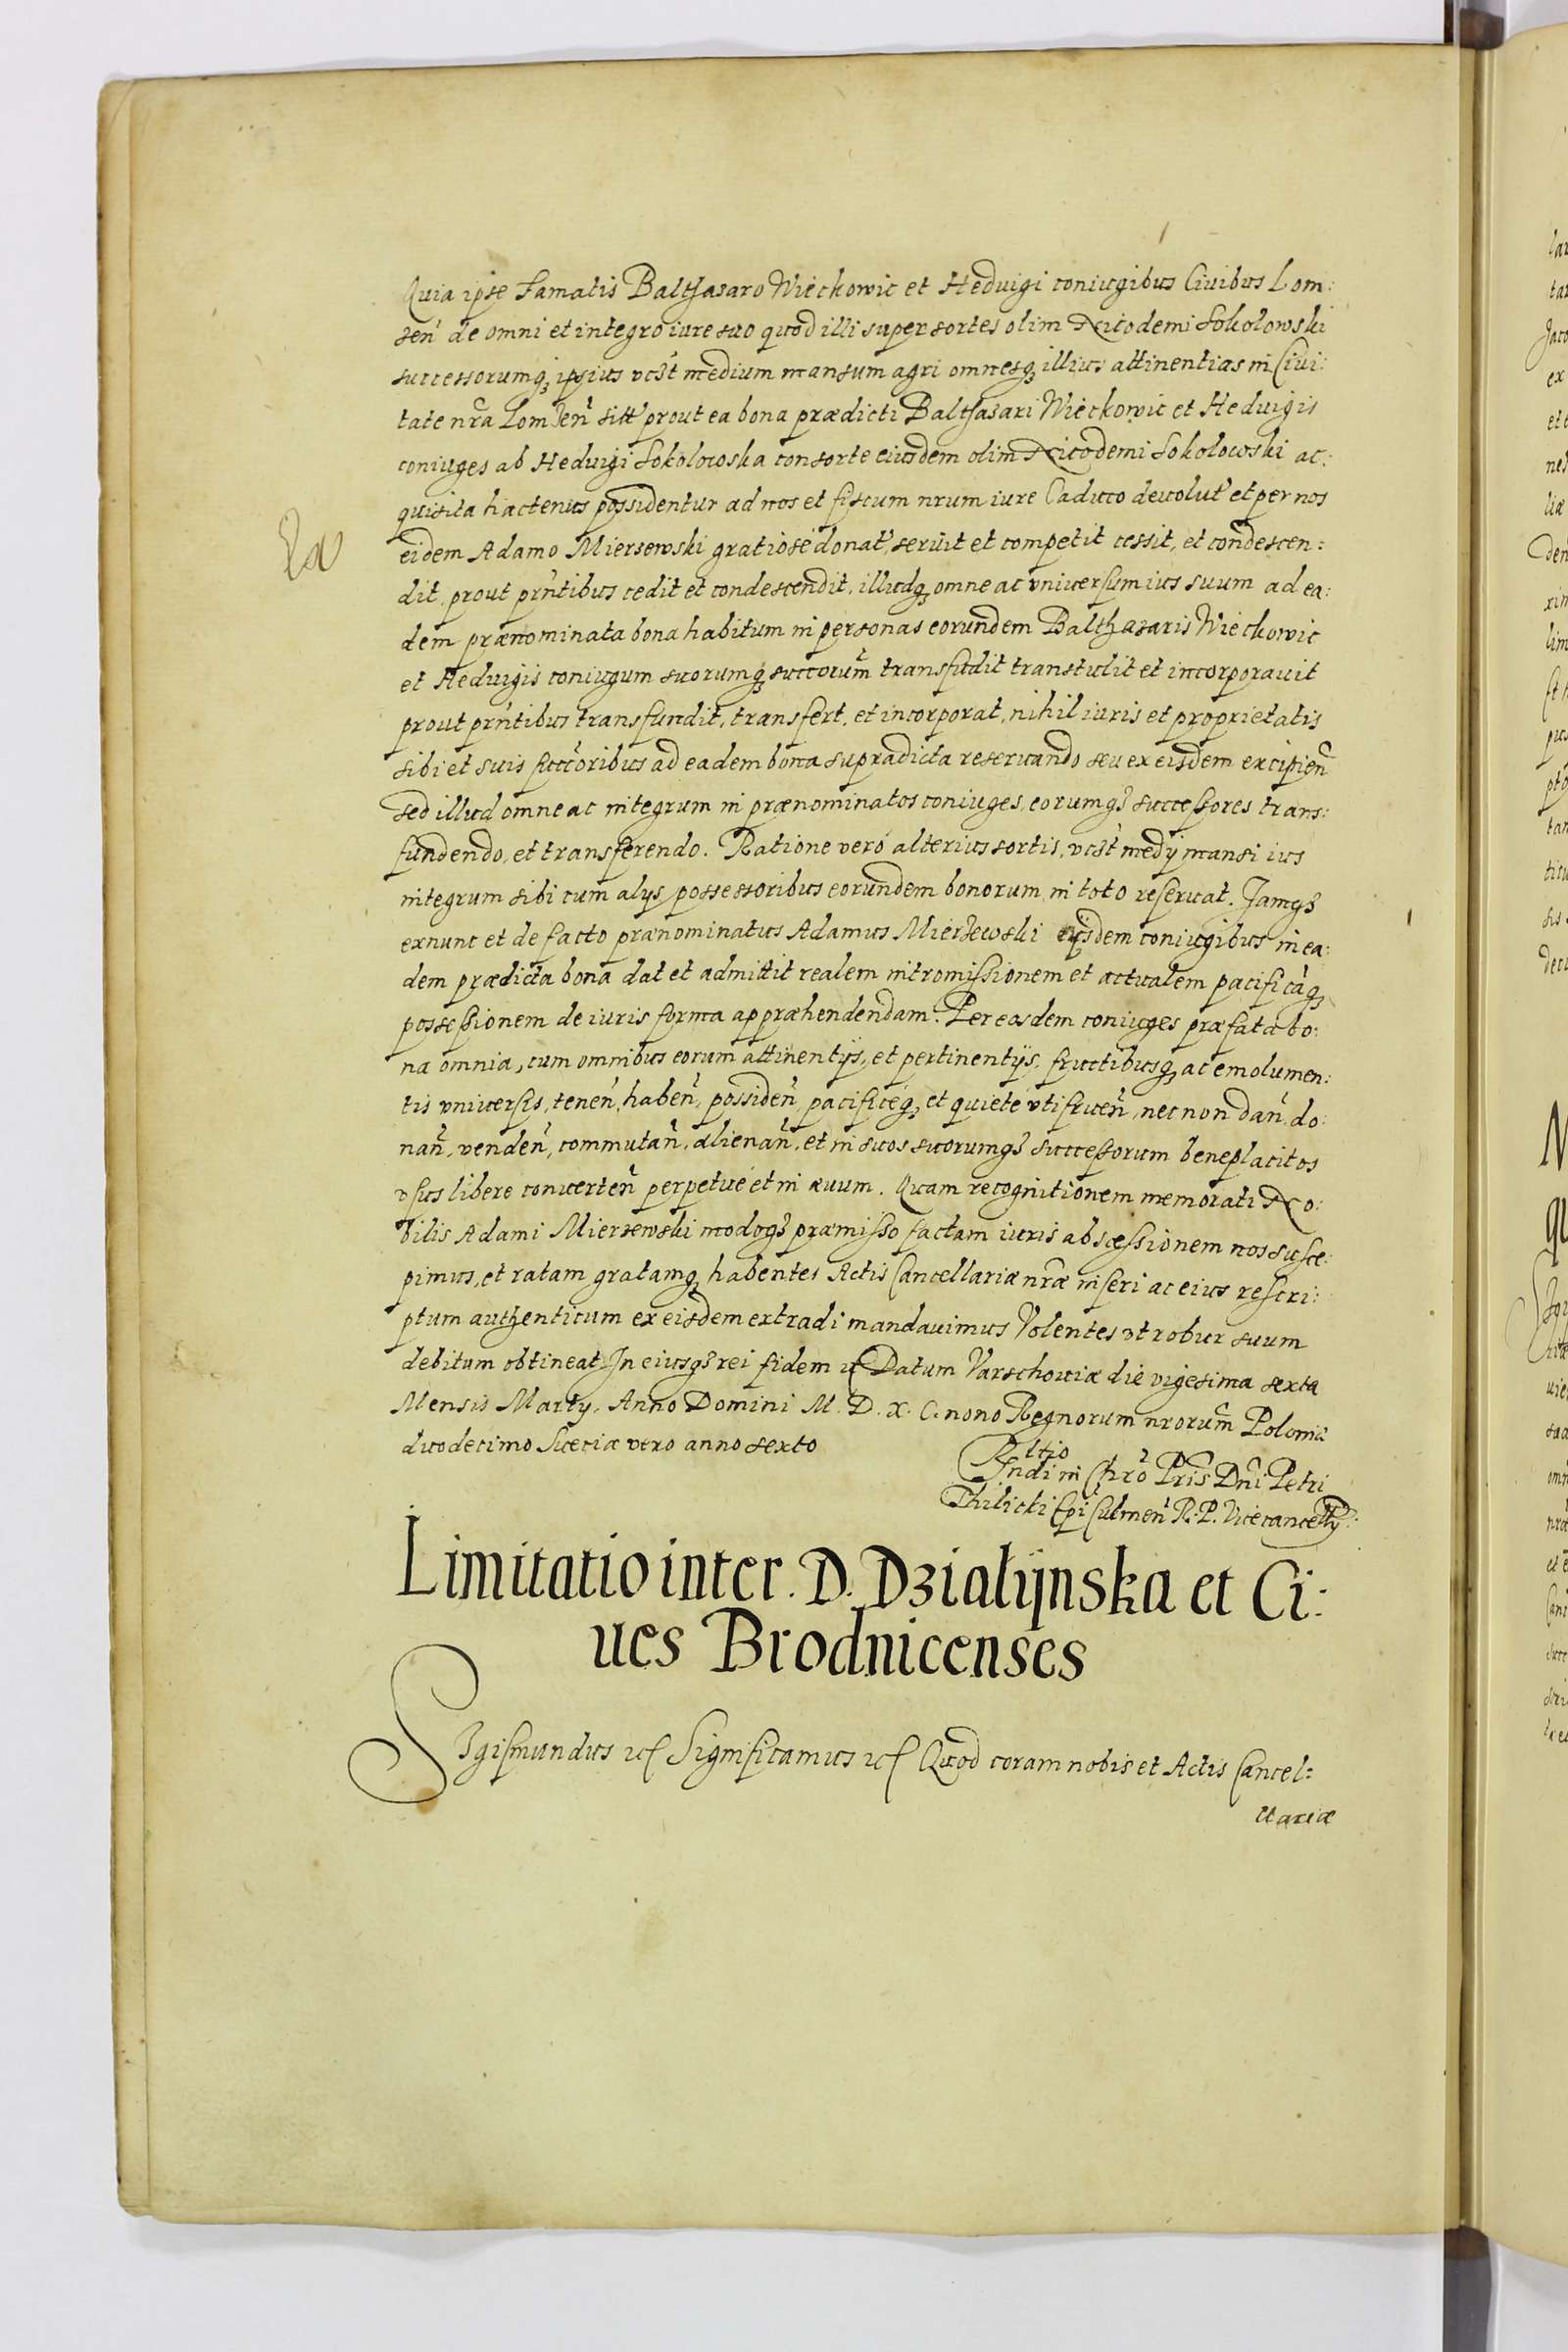 Quia ipse Famatis Balthasaro Wieckowic et Hedvigi coniugibus Civibus Lom:
zen̄ de omni et integro iure suo quod illi super sortes olim Nicodemi Sokolowski
successorumq́ʒ ipsius vćzt medium mansum agri omnesqʒ illius attinentias in Civi:
tate nr̄a Lomzen̄ sitt̓ prout ea bona prædicti Balthasari Wieckowic et Hedvigis
coniuges ab Hedvigi Sokolowska consorte eiusdem olim Nicodemi Sokolowski ac:
quisita hactenus possidentur ad nos et fiscum nrum iure Caduco devolut̓ et per nos
eidem Adamo Miersewski gratiosé donat̓, seruit et competit cessit, et condescen:
dit, prout prn̄tibus cedit et condescendit, illudqʒ omne ac vniuersum ius suum ad ea:
dem prænominata bona habitum in personas eorundem Balthasaris Wieckowic
et Hedvigis coniugum suorumqʒ succorum̄ transfudit transtulit et incorporavit
prout prn̄tibus transfundit, transfert, et incorporat, nihil iuris et proprietatis
sibi et suis succ̄oribus ad eadem bona supradicta reservando seu ex eisdem excipien̄
sed illud omne ac integrum in prænominatos coniuges, eorumqʒ successores trans:
fundendo, et transferendo. Ratione veró alterius sortis, vćzt medÿ mansi ius
integrum sibi cum alÿs possessoribus eorundem bonorum in toto reservat. Jamqʒ
exnunc et de facto prænominatus Adamus Mierzewski eisdem coniugibus in ea:
dem prædicta bona dat et admittit realem intromissionem et actualem pacificáqʒ
possessionem de iuris forma appræhendendam. Per eosdem coniuges præfata bo:
na omnia, cum omnibus eorum attinentÿs, et pertinentÿs, fructibusqʒ ac emolumen:
tis vniversis, tenen̄, haben̄, possiden̄, pacificéqʒ et quieté vtifruen̄, necnon dan̄, do:
nan̄, venden̄, commutan̄, alienan̄, et in suos suorumqʒ successorum beneplacitos
vsus libere converten̄ perpetué et in ævum. Quam recognitionem memorati No:
bilis Adami Miersewski modoqʒ præmisso factam iuris abscessionem nos susce:
pimus, et ratam gratamqʒ habentes Actis Cancellariæ nræ inseri ac eius rescri:
ptum authenticum ex eisdem extradi mandavimus Volentes vt robur suum
debitum obtineat, In eiusqʒ rei fidem ꝛc̄ Datum Varschoviæ die vigesima sexta
Mensis Martÿ, Anno Domini M. D. X. C. nono Regnorum nrorum̄ Poloniæ
duodecimo Sueciæ vero anno sexto
Rltio
Rndi in Chro Pris Dni Petri
Thilicki Epi Culmen̄ R. P. Vicecancellÿ
Limitatio inter. D. Działijnska et Ci:
ues Brodnicenses
SIgismundus ꝛc̄ Significamus ꝛc̄ Quod coram nobis et Actis Cancel:
llariæ